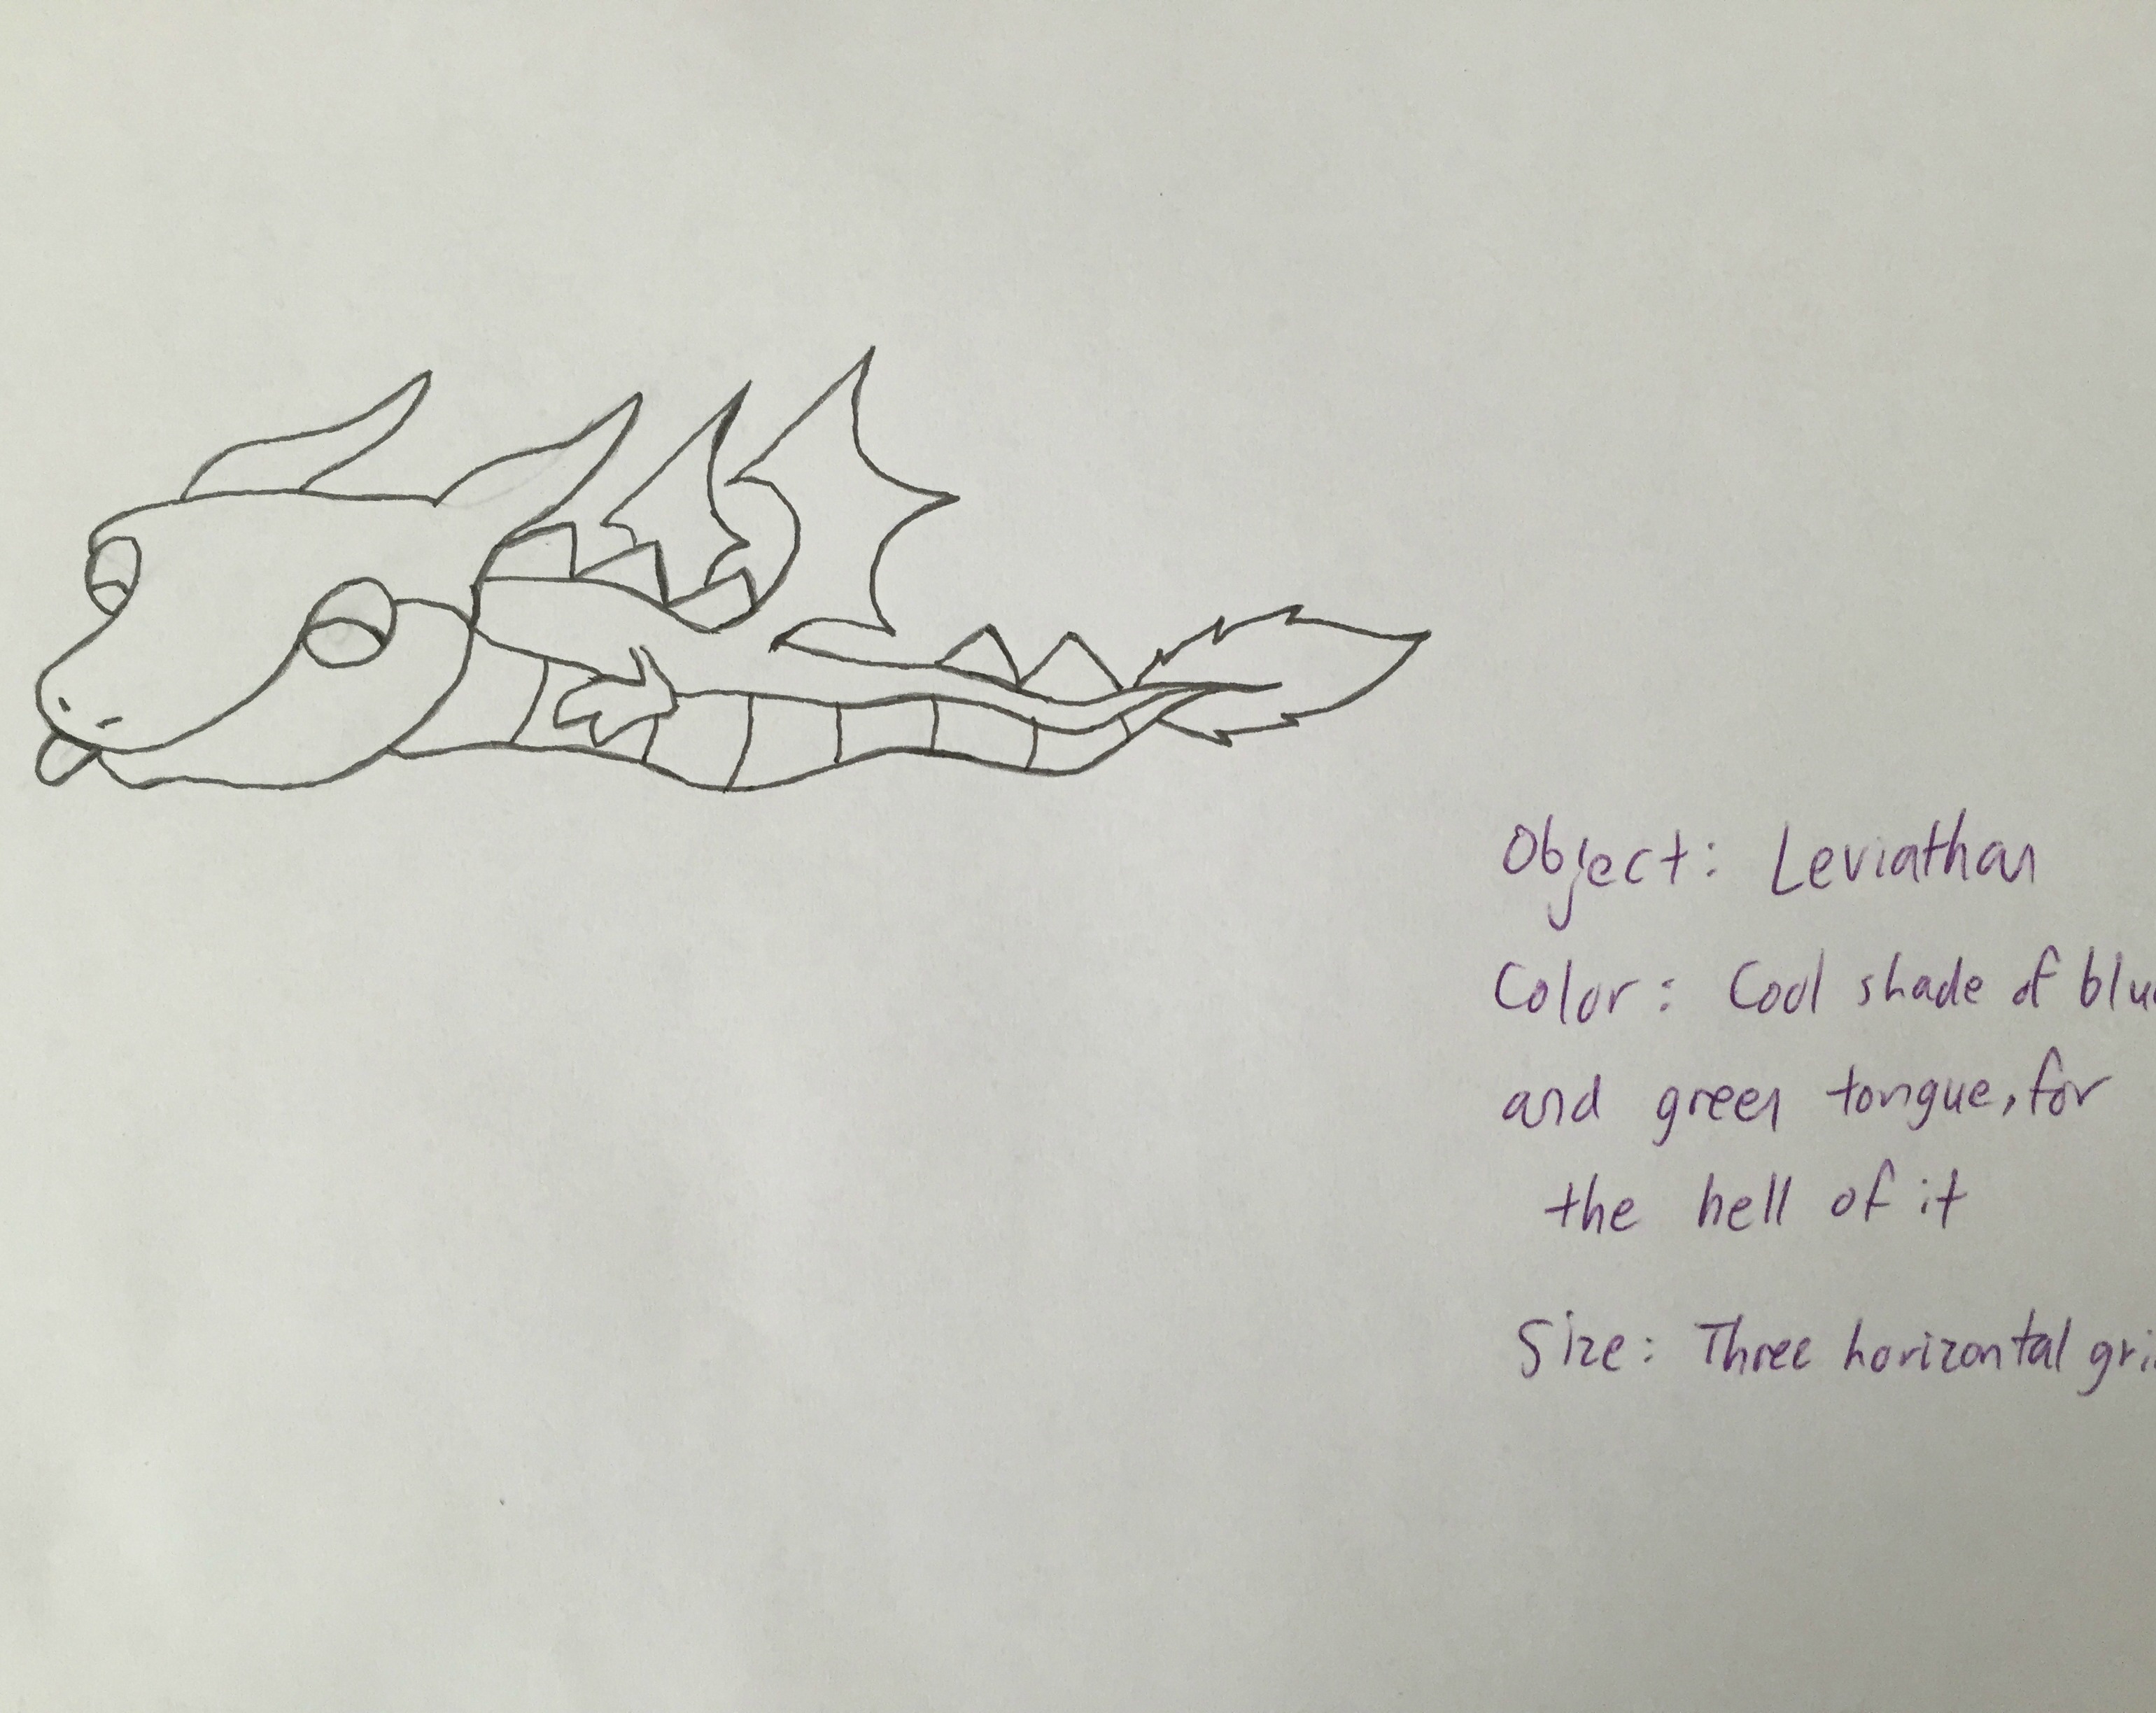 Object: Leviathan
Color: Cool shade of blu
and green tongue, for
the hell of it
Size: Three horizontal gri